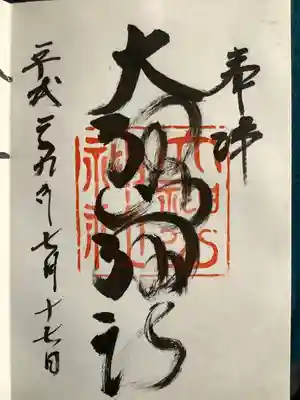 奉拝
大神神社
平成二九年七月十七日